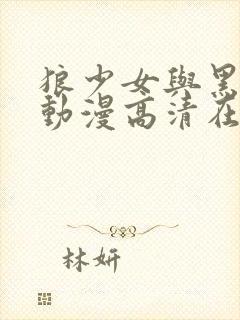 狼少女與黑
動漫高清在
林妍